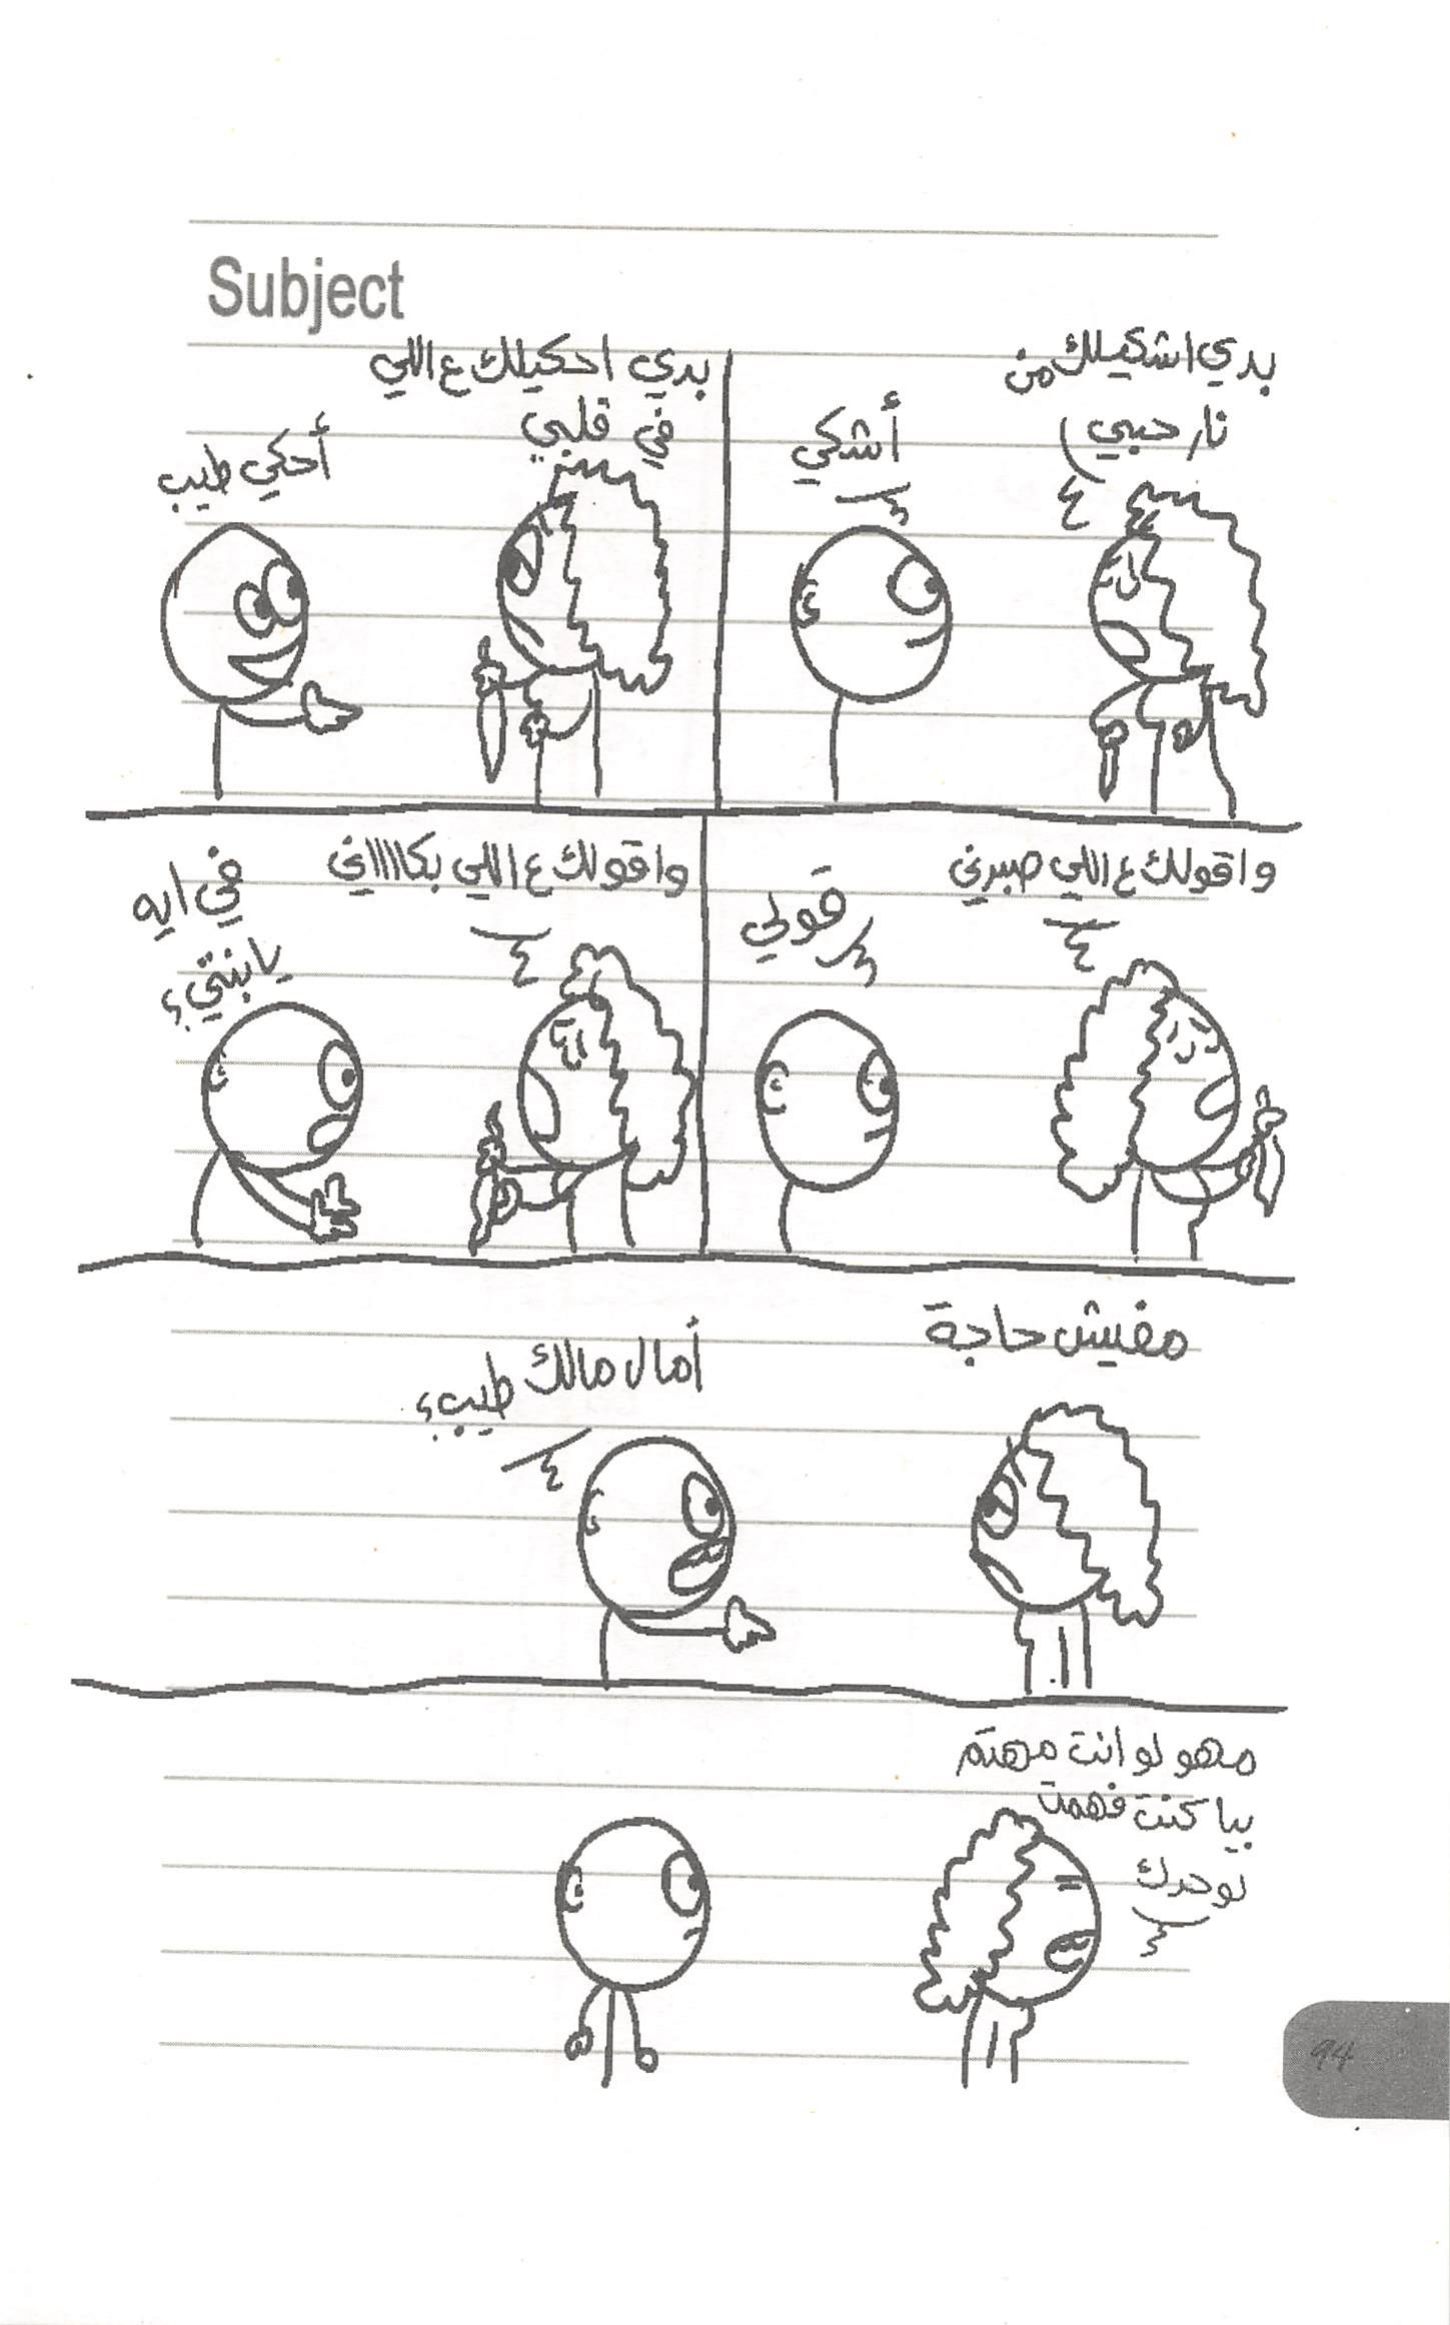 Subject
بدي اشكيلك من
نار حبي
أشكي
بدي احكيلك ع اللي
في قلبي
أحكي طيب
واقولك ع اللي صبرني
قولي
واقولك ع اللي بكااااني
في ايه
يابنتي؟
مفيش حاجة
أمال مالك طيب؟
مهو لو انت مهتم
بيا كنت فهمت
لوحدك
94